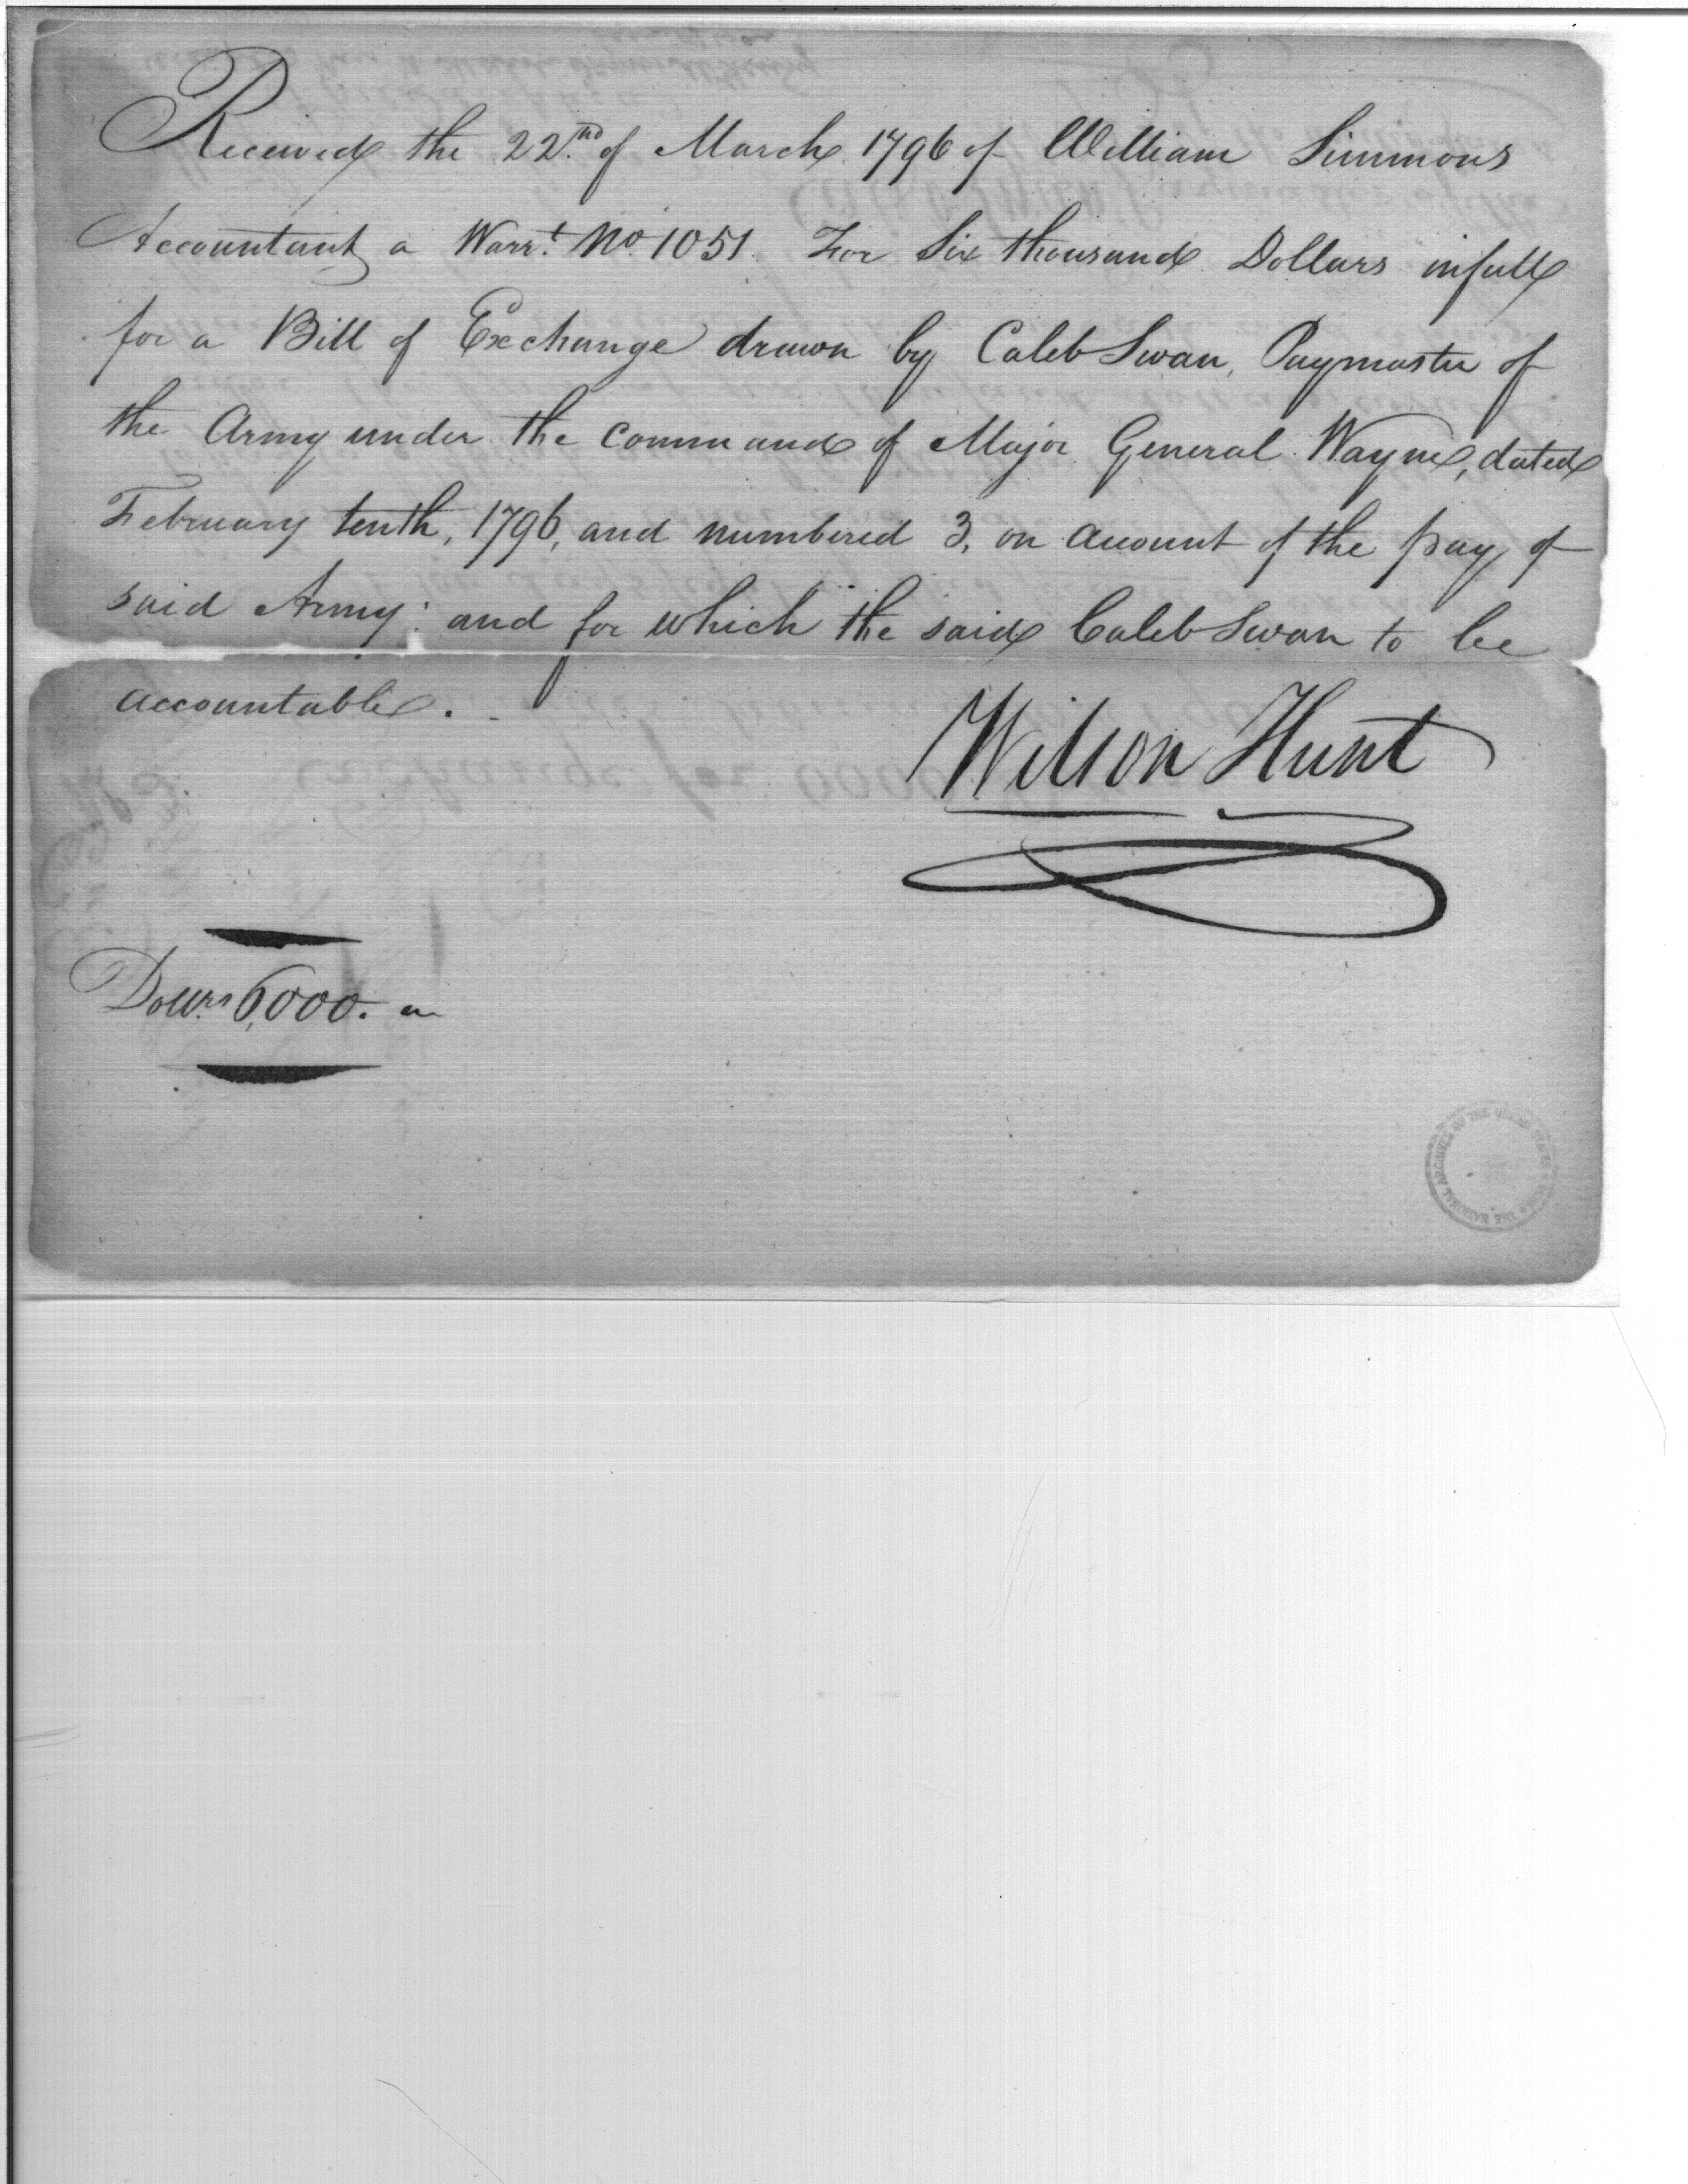 Received the 22.nd of March 1796 of William Simmons
Accountant a Warr.t No 1051. For Six thousand Dollars in full
for a Bill of Exchange drawn by Caleb Swan, Paymaster of
the Army under the command of Major General Wayne, dated
February tenth, 1796, and numbered 3, on account of the pay of
said Army: and for which the said Caleb Swan to be
accountable.
Wilson Hunt
Dollrs 6,000.